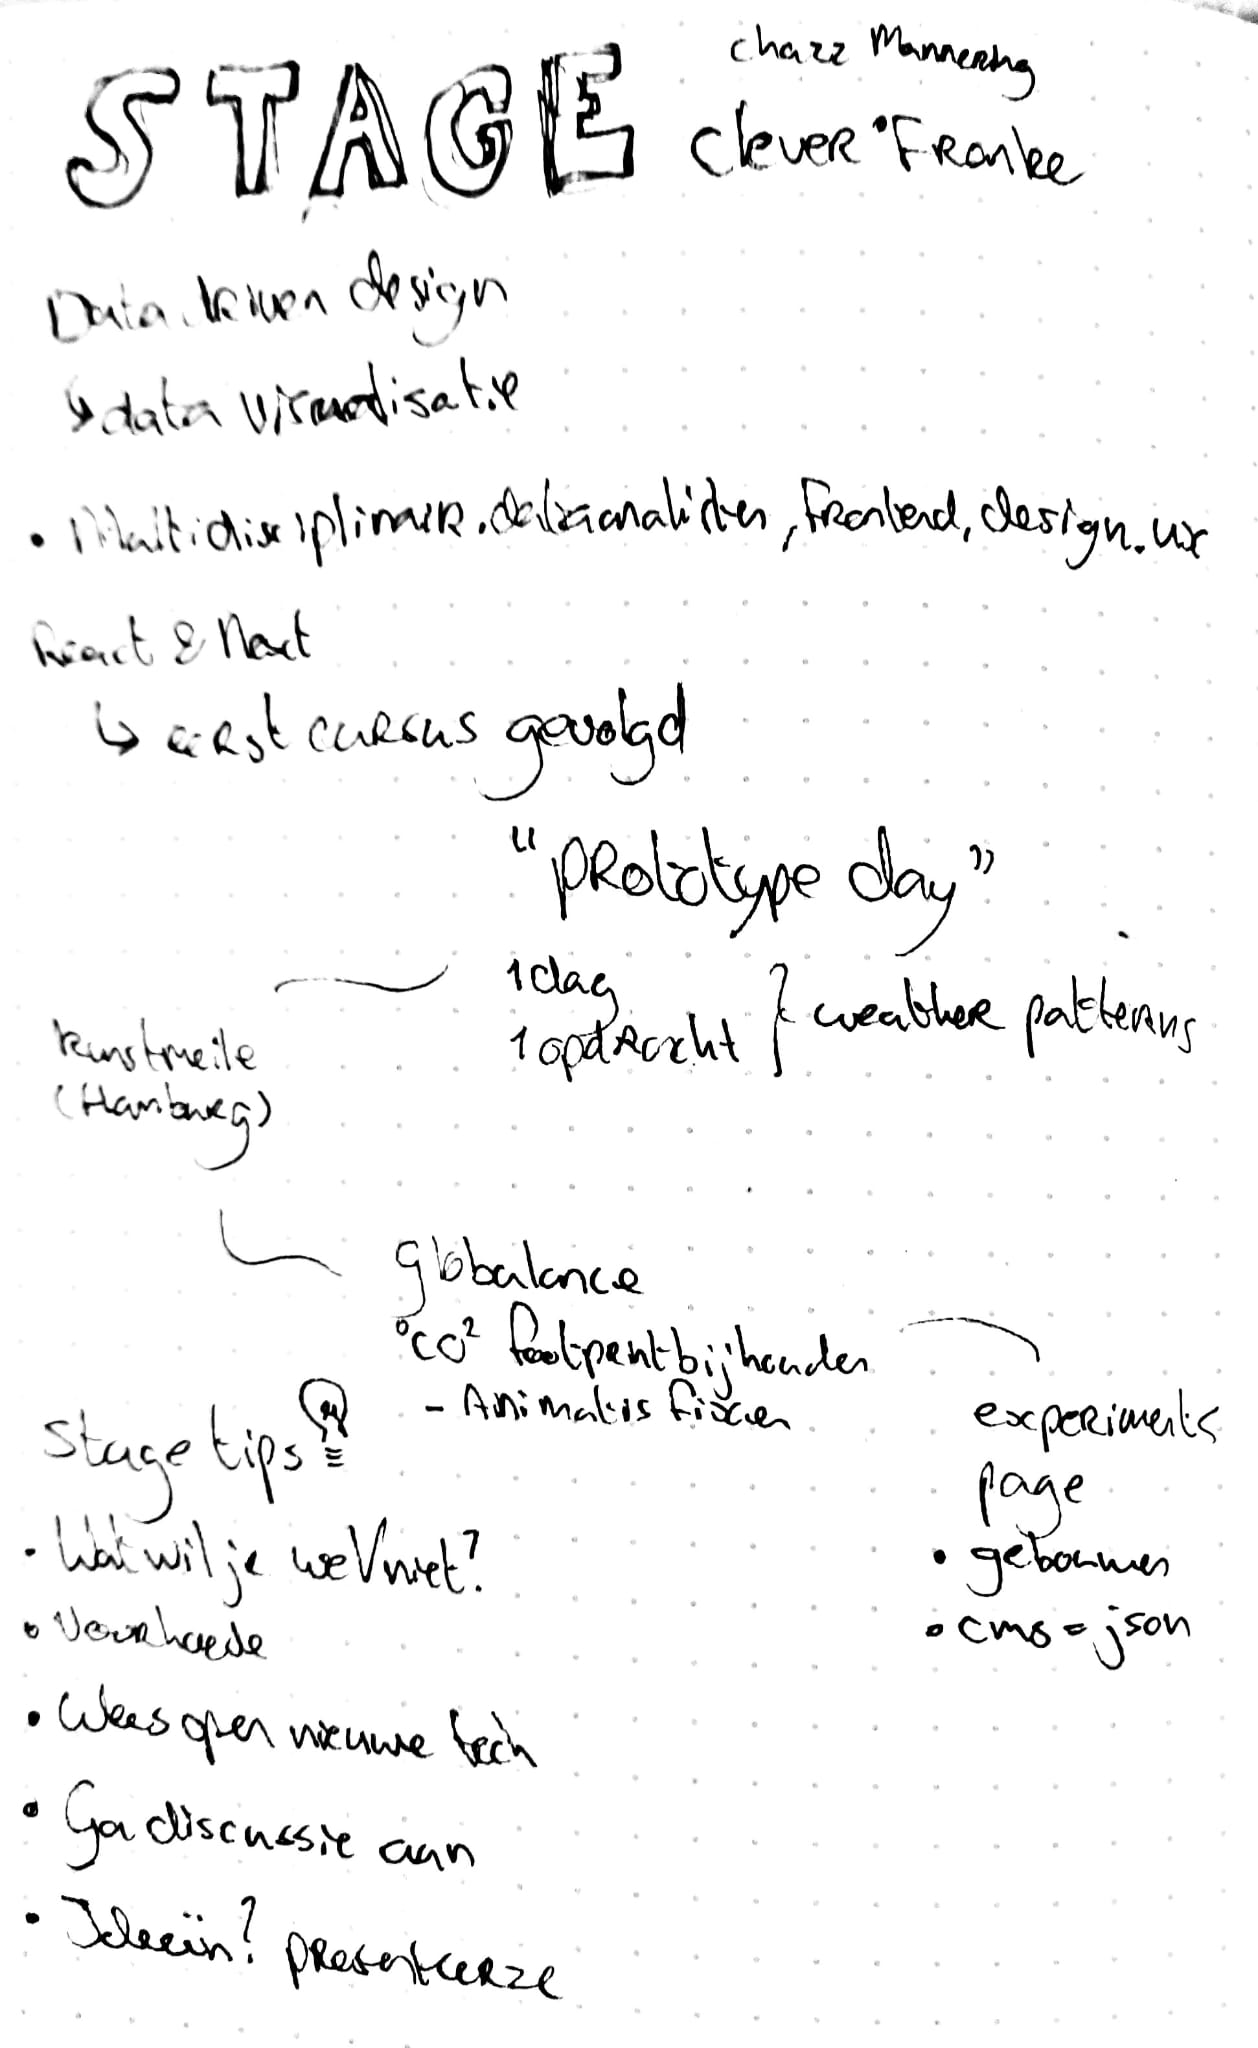 STAGE
Chazz Mannering
Clever °Franke
Data driven design
↳ data visualisatie
• Multidisciplinair. data analisten, Frontend, design. ux
React & Next
↳ eerst cursus gevolgd
"prototype day"
1 dag
1 opdracht } weather patterns
kunstmeile
(Hamburg)
Globalance
°CO² footprent bijhouden
- Animaties fixen
experiments
page
• gebouwen
• cms = json
Stage tips
• Wat wil je wel/niet?
• Voorhoede
• Wees open nieuwe tech
• Ga discussie aan
• Ideeën? presenteer ze